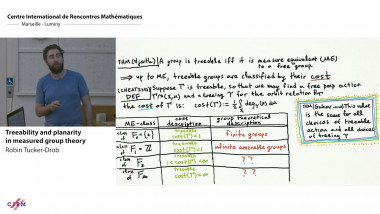 Centre International de Rencontres Mathématiques
Marseille - Luminy
THM (Hjorth) A group is treeable iff it is measure equivalent (ME)
to a free group.
⇒ up to ME, treeable groups are classified by their cost
(CHEATSHEET) Suppose Γ is treeable, so that we may find a free pmp action
DEF Γ↷(X,μ) and a treeing Υ for the orbit relation
the cost of Γ is: cost(Γ) :=
THM (Gaboriau) This value
is the same for all
choices of treeable
action and all choices
of treeing Υ
ME-class
cost description
group theoretical description
class of F₀ = {e}
treeable
cost(Γ) < 1
finite groups
class of F₁ = ℤ
treeable
cost(Γ) = 1
infinite amenable groups
class of F₂
treeable
1 < cost(Γ) < ∞
? ?
class of F∞
treeable
cost(Γ) = ∞
? ?
Treeability and planarity
in measured group theory
Robin Tucker-Drob
CIRM